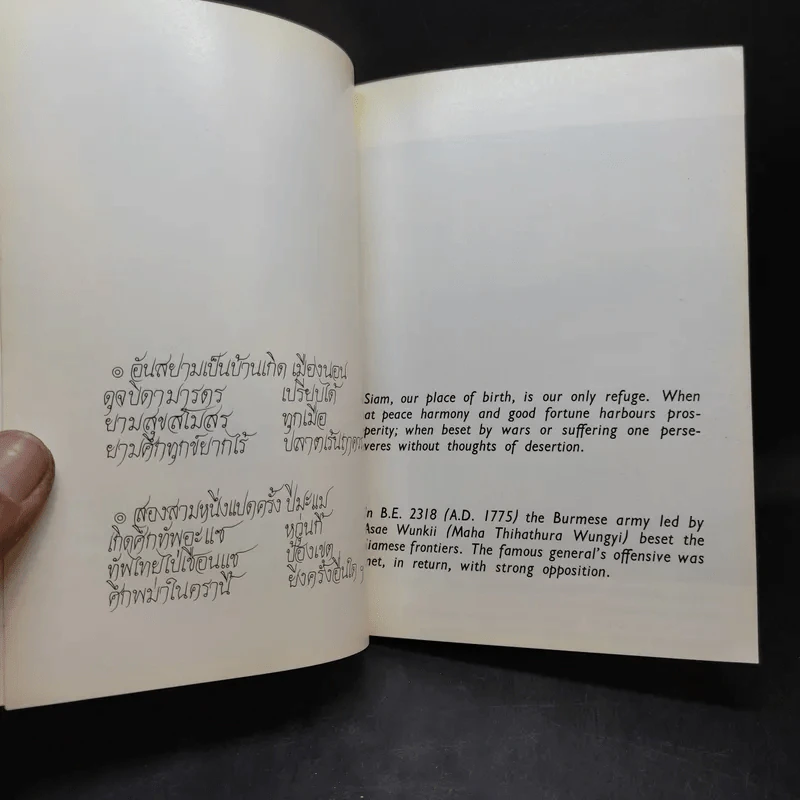 ๏ อันสยามเป็นบ้านเกิด เมืองนอน
ดุจบิดามารดร เปรียบได้
ยามสุขสโมสร ทุกเมื่อ
ยามศึกทุกข์ยากไร้
๏ สองสามหนึ่งแปดครั้ง ปีมะแม
เกิดศึกทัพอะแซ หวุ่นกี้
ทัพไทยไป่เชือนแช ป้องเขต
ศึกพม่าในครานี้ ยิ่งครั้งอื่นใด ๆ
Siam, our place of birth, is our only refuge. When
at peace harmony and good fortune harbours pros-
perity; when beset by wars or suffering one perse-
veres without thoughts of desertion.
In B.E. 2318 (A.D. 1775) the Burmese army led by
Asae Wunkii (Maha Thihathura Wungyi) beset the
Siamese frontiers. The famous general's offensive was
met, in return, with strong opposition.